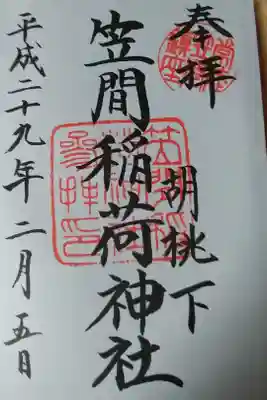 奉拝
胡桃下
笠間稲荷神社
平成二十九年二月五日